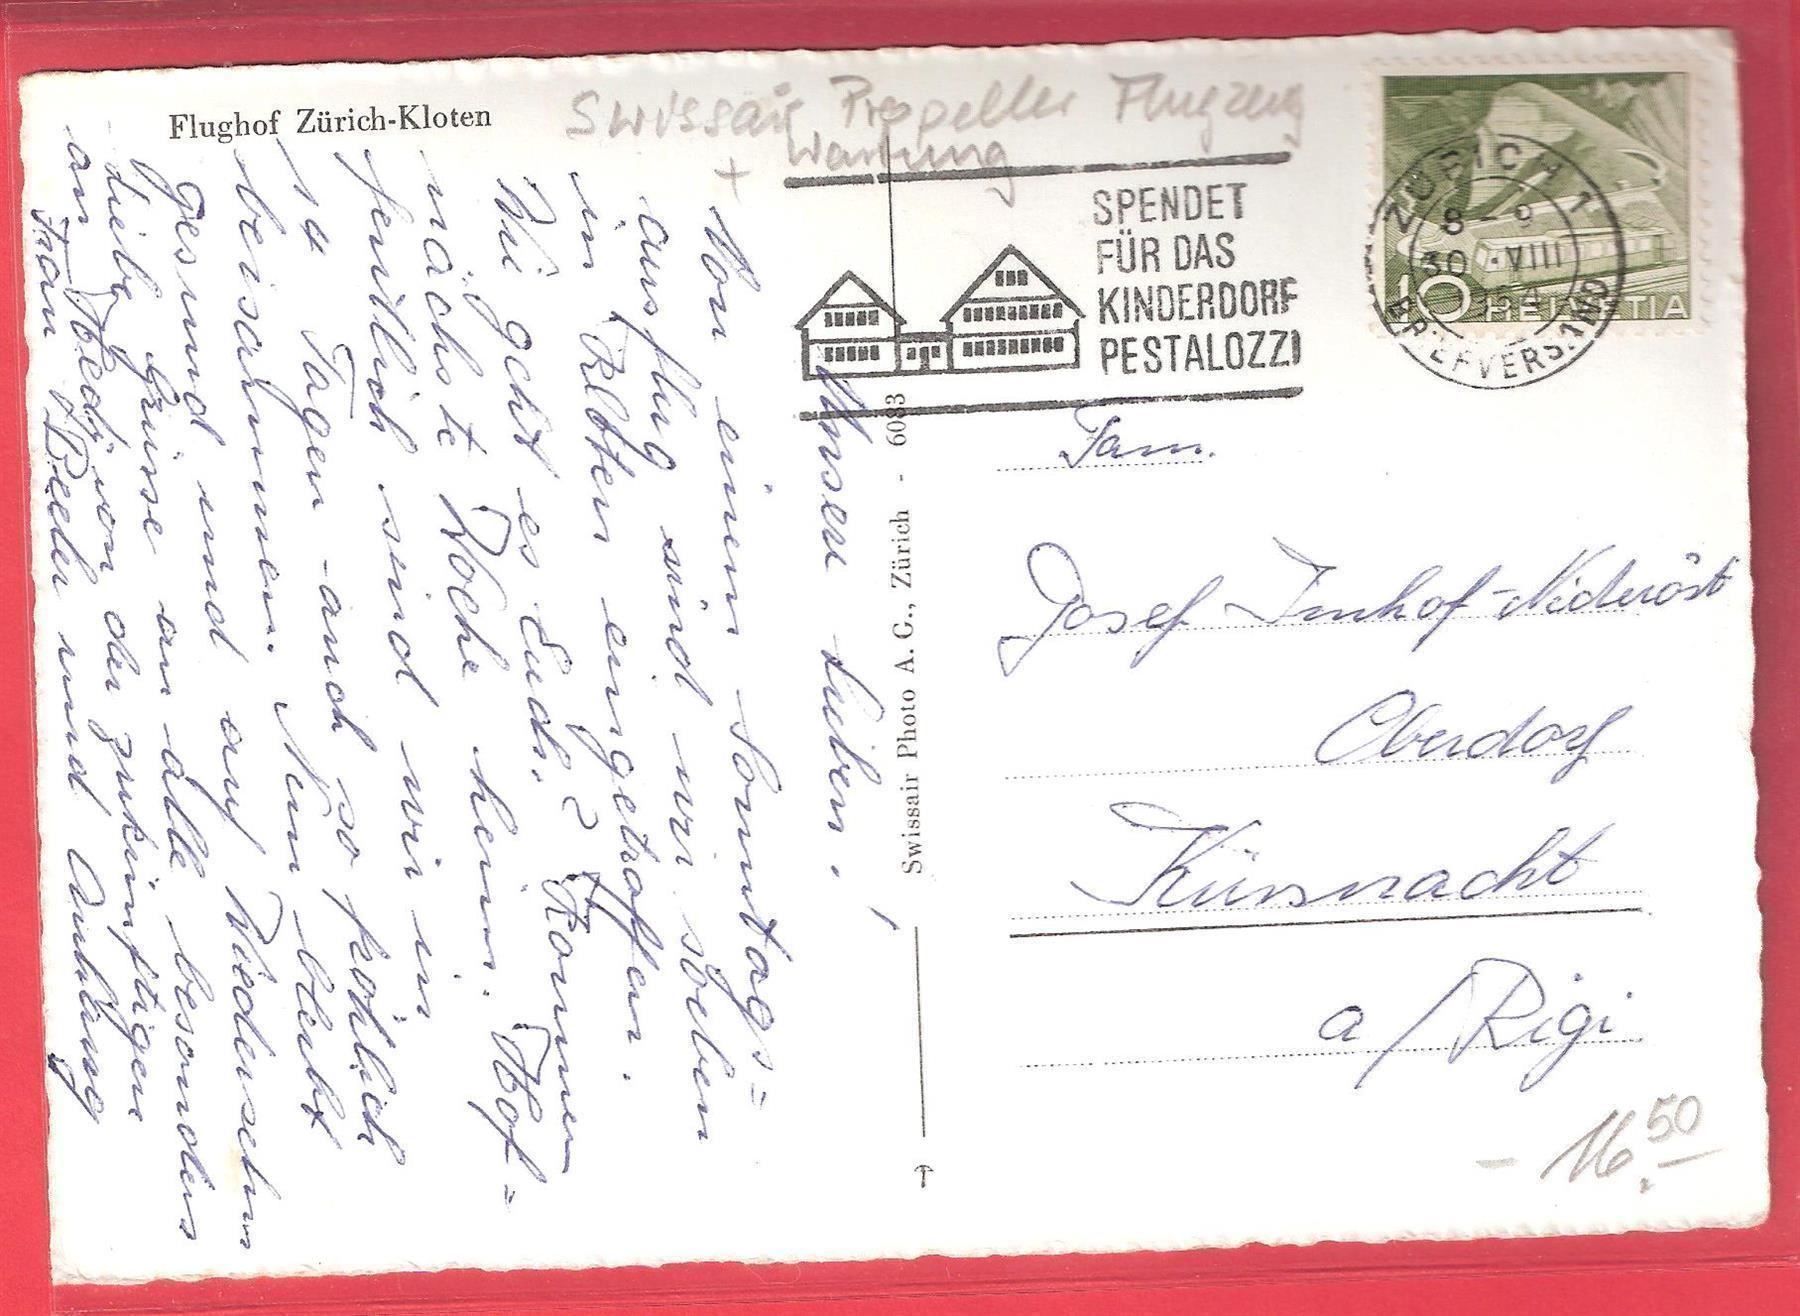 Flughof Zürich-Kloten
Swissair Propeller Flugzeug
+ Wartung
SPENDET
FÜR DAS
KINDERDORF
PESTALOZZI
ZÜRICH 1
8-9
30.VIII
BRIEFVERSAND
10 HELVETIA
Unsere Lieben!
Von einem Sonntags=
ausflug sind wir soeben
in Altten eingetroffen.
Wie geht es Euch? Kommen
nächste Woche heim. Hof=
fentlich sind wir in
14 Tagen auch so fröhlich
beisammen. Nun bleibt
gesund und auf Wiedersehn
Liebe Grüsse an alle besonders
an Hedi von der zukünftigen
Frau Beeler und Anhang
Swissair Photo A. G., Zürich - 6083
Fam.
Josef Imhof-Nideröst
Oberdorf
Küssnacht
a/Rigi
- 16.50